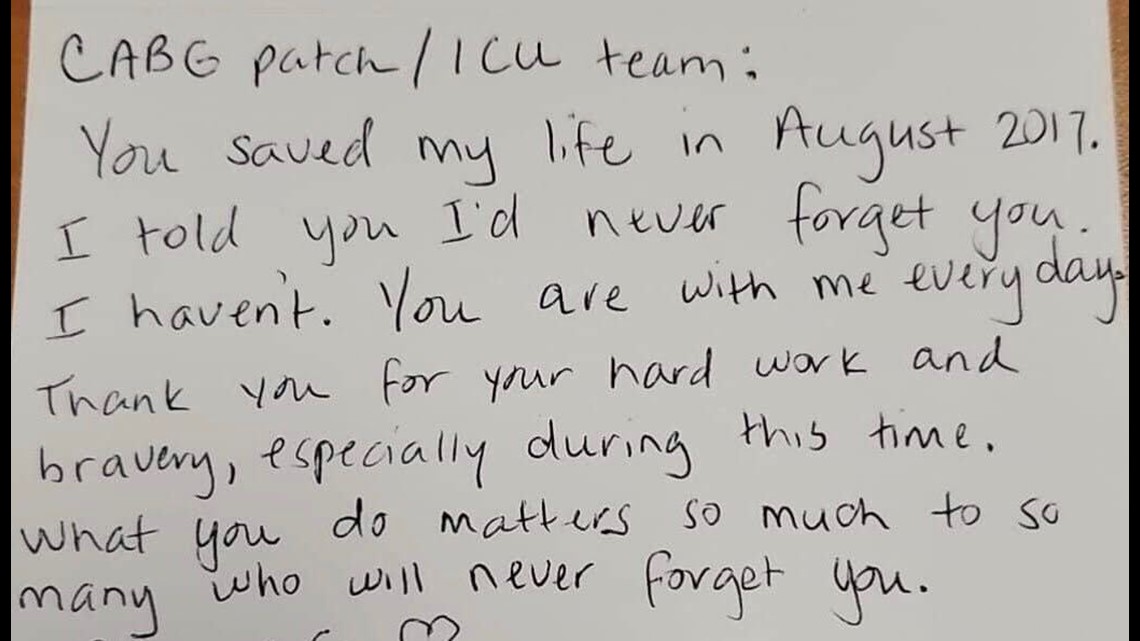 CABG patch/ICU team:
You saved my life in August 2017.
I told you I'd never forget you.
I haven't. You are with me everyday.
Thank you for your hard work and
bravery, especially during this time.
What you do matters so much to so
many who will never forget you.
♡